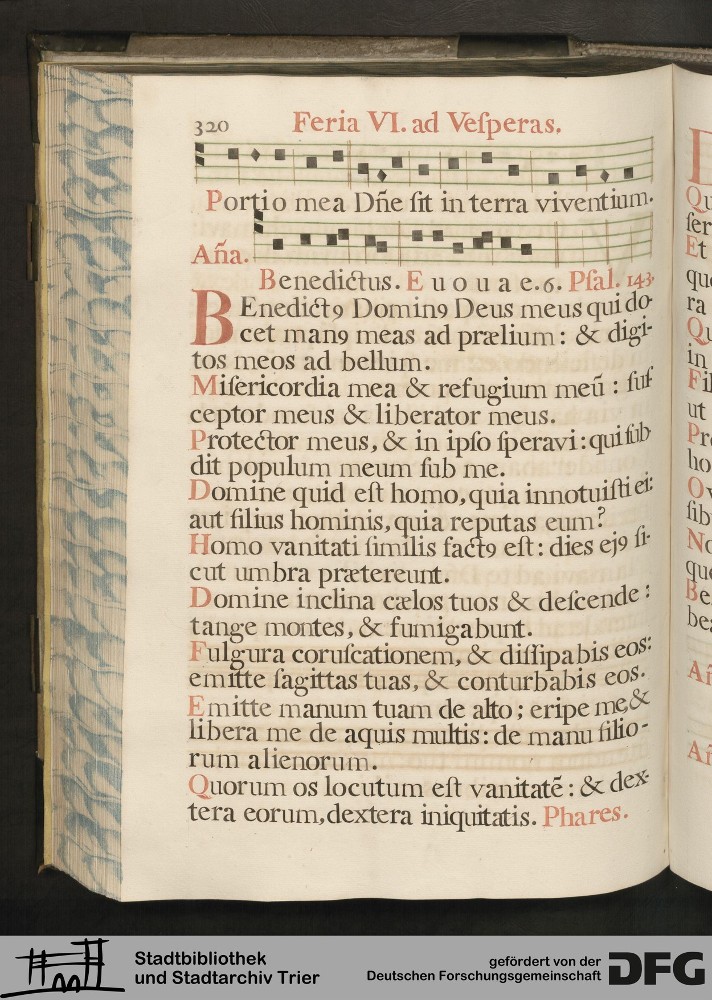 320 Feria VI. ad Veſperas.
Portio mea Dñe ſit in terra viventium.
Aña.
Benedictus. E u o u a e. 6. Pſal. 143.
BEnedictꝯ Dominꝯ Deus meus qui do-
cet manꝯ meas ad prælium: & digi-
tos meos ad bellum.
Miſericordia mea & refugium meū: ſuſ-
ceptor meus & liberator meus.
Protector meus, & in ipſo ſperavi: qui ſub-
dit populum meum ſub me.
Domine quid eſt homo, quia innotuiſti ei:
aut filius hominis, quia reputas eum?
Homo vanitati ſimilis factꝯ eſt: dies ejꝯ ſi-
cut umbra prætereunt.
Domine inclina cælos tuos & deſcende:
tange montes, & fumigabunt.
Fulgura coruſcationem, & diſſipabis eos:
emitte ſagittas tuas, & conturbabis eos.
Emitte manum tuam de alto; eripe me, &
libera me de aquis multis: de manu filio-
rum alienorum.
Quorum os locutum eſt vanitatē: & dex-
tera eorum, dextera iniquitatis. Phares.
Qu
ſer
Et
que
ra
Qu
in
Fil
ut
Pro
ho
ſib
No
que
Be
bea
Añ
Añ
Stadtbibliothek
und Stadtarchiv Trier
gefördert von der
Deutschen Forschungsgemeinschaft
DFG